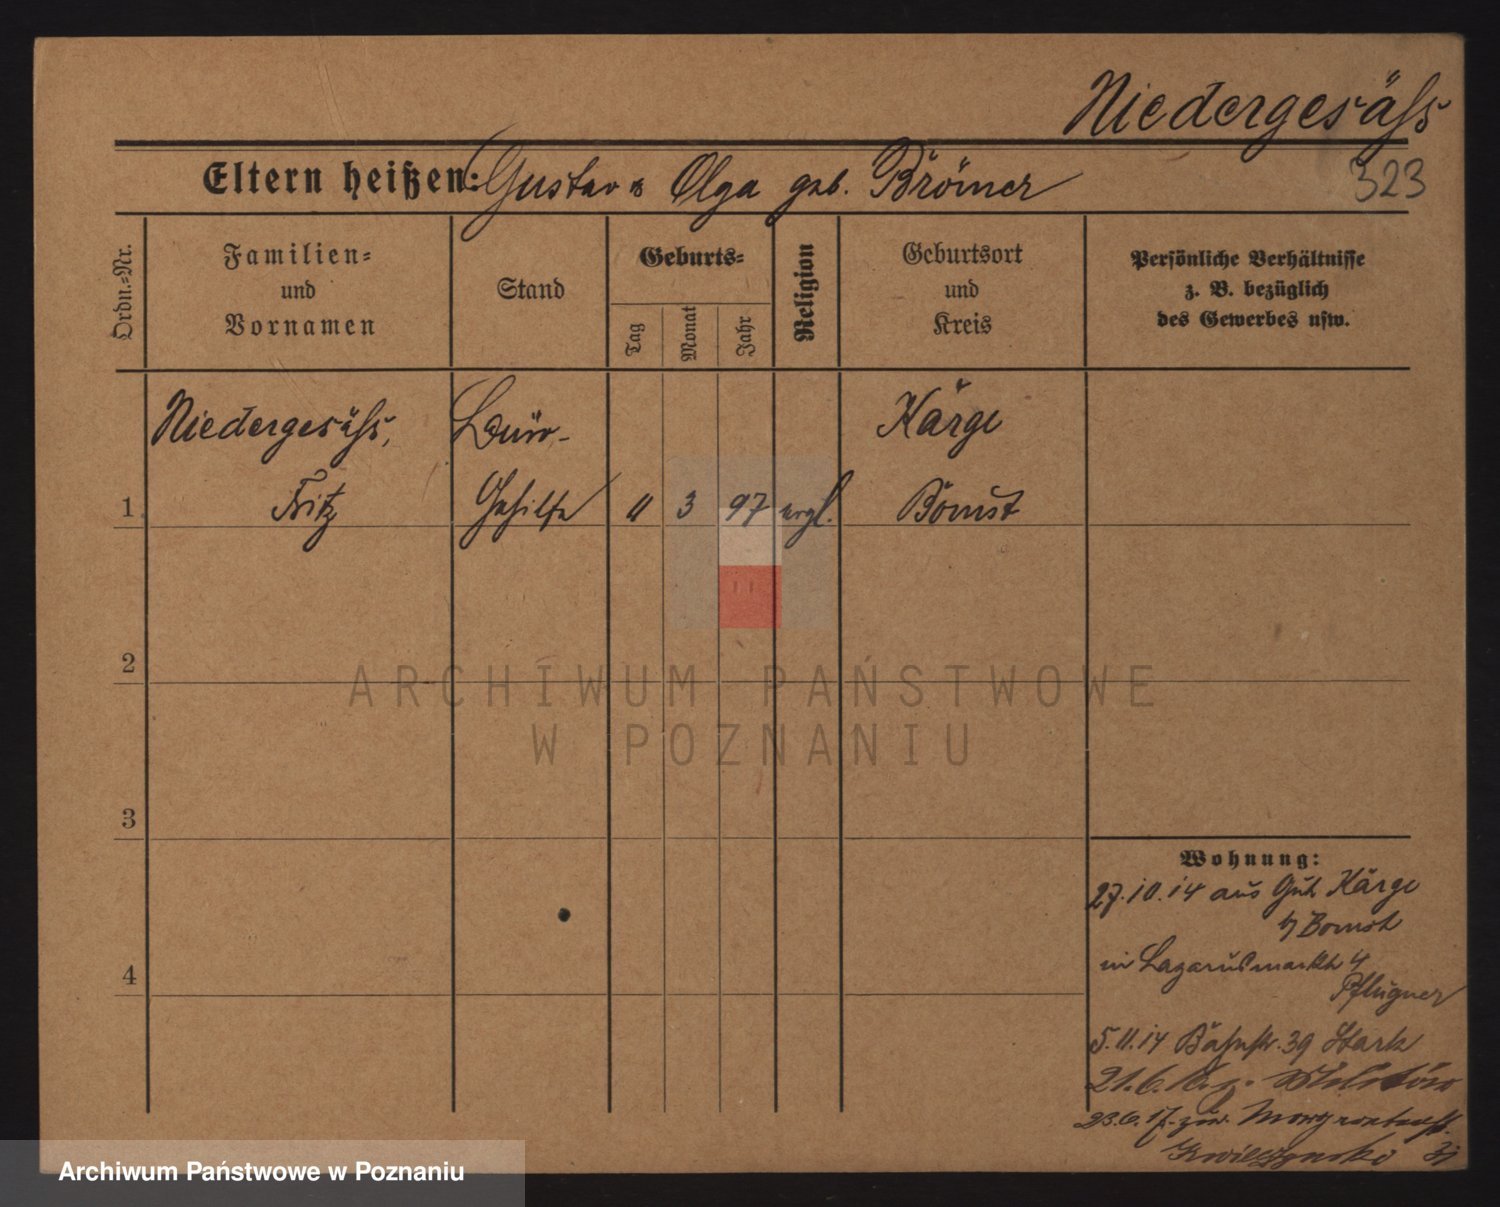 Niedergesäß
Eltern heißen: Gustav u Olga geb. Brömer
323
Ordn.-Nr.
Familien- und Vornamen
Stand
Geburts-
Tag
Monat
Jahr
Religion
Geburtsort und Kreis
Persönliche Verhältnisse z. B. bezüglich des Gewerbes usw.
Niedergesäß, Büro- Kärge
1. Fritz Gehilfe 11 3 97 evgl. Bomst
2
3
4
Wohnung:
27.10.14 aus Gut Kärge
b/ Bomst
in Lazarusmarkt 4
Pflugner
5.11.14 Bahnstr. 39 Stark
21.6. z. Militär
23.6.17. zur.
ARCHIWUM PAŃSTWOWE
W POZNANIU
Archiwum Państwowe w Poznaniu